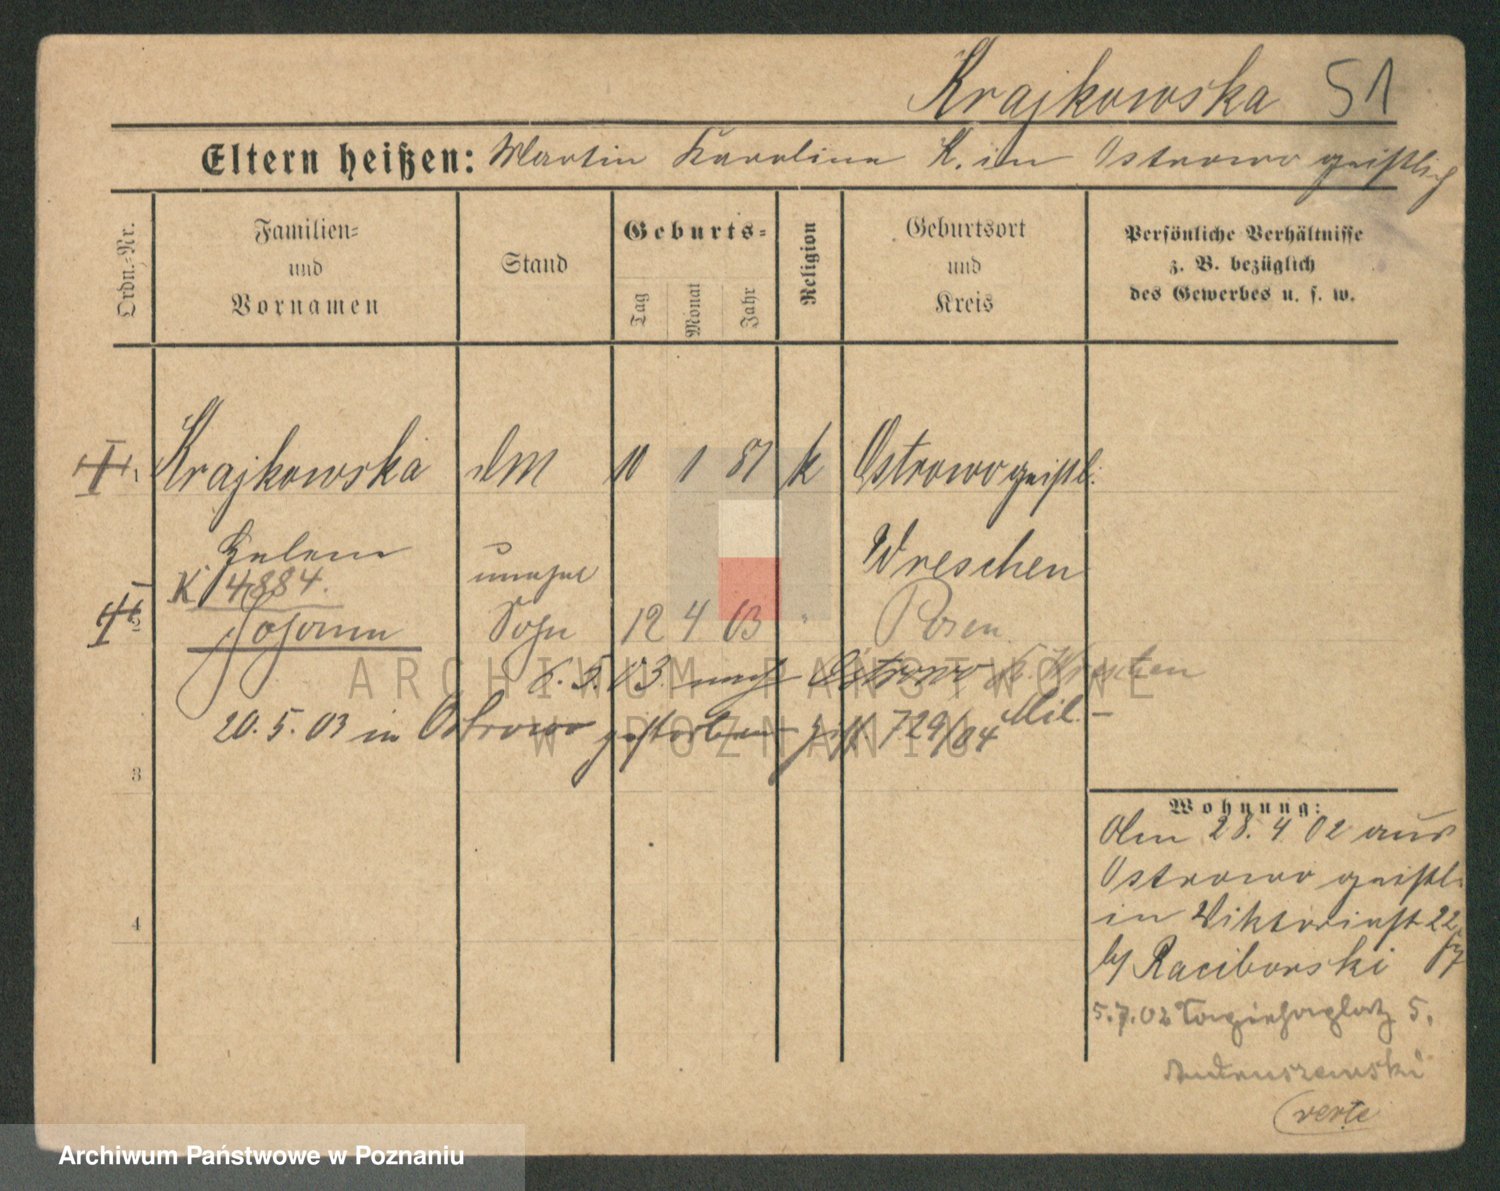 Krajkowska 51
Eltern heißen: Martin Karolina K. in Ostrowo geistlich
Ordn.-Nr.
Familien-
und
Vornamen
Stand
Geburts-
Tag
Monat
Jahr
Religion
Geburtsort
und
Kreis
Persönliche Verhältnisse
z. B. bezüglich
des Gewerbes u. s. w.
1 Krajkowska DM 10 1 81 k Ostrowo geistl.
Helene Wreschen
K 4884. unehel
2 Johann Sohn 12 4 03 " Posen
6.5.03 nach Ostrowo
20.5.03 in Ostrowo gestorben 729/04 Mil.-
3
4
Wohnung:
28.4 02 aus
Ostrowo geistl.
in Viktoriast 22
b/ Raciborski
5.7.02 Sapiehaplatz 5.
verte
ARCHIWUM PAŃSTWOWE
W POZNANIU
Archiwum Państwowe w Poznaniu